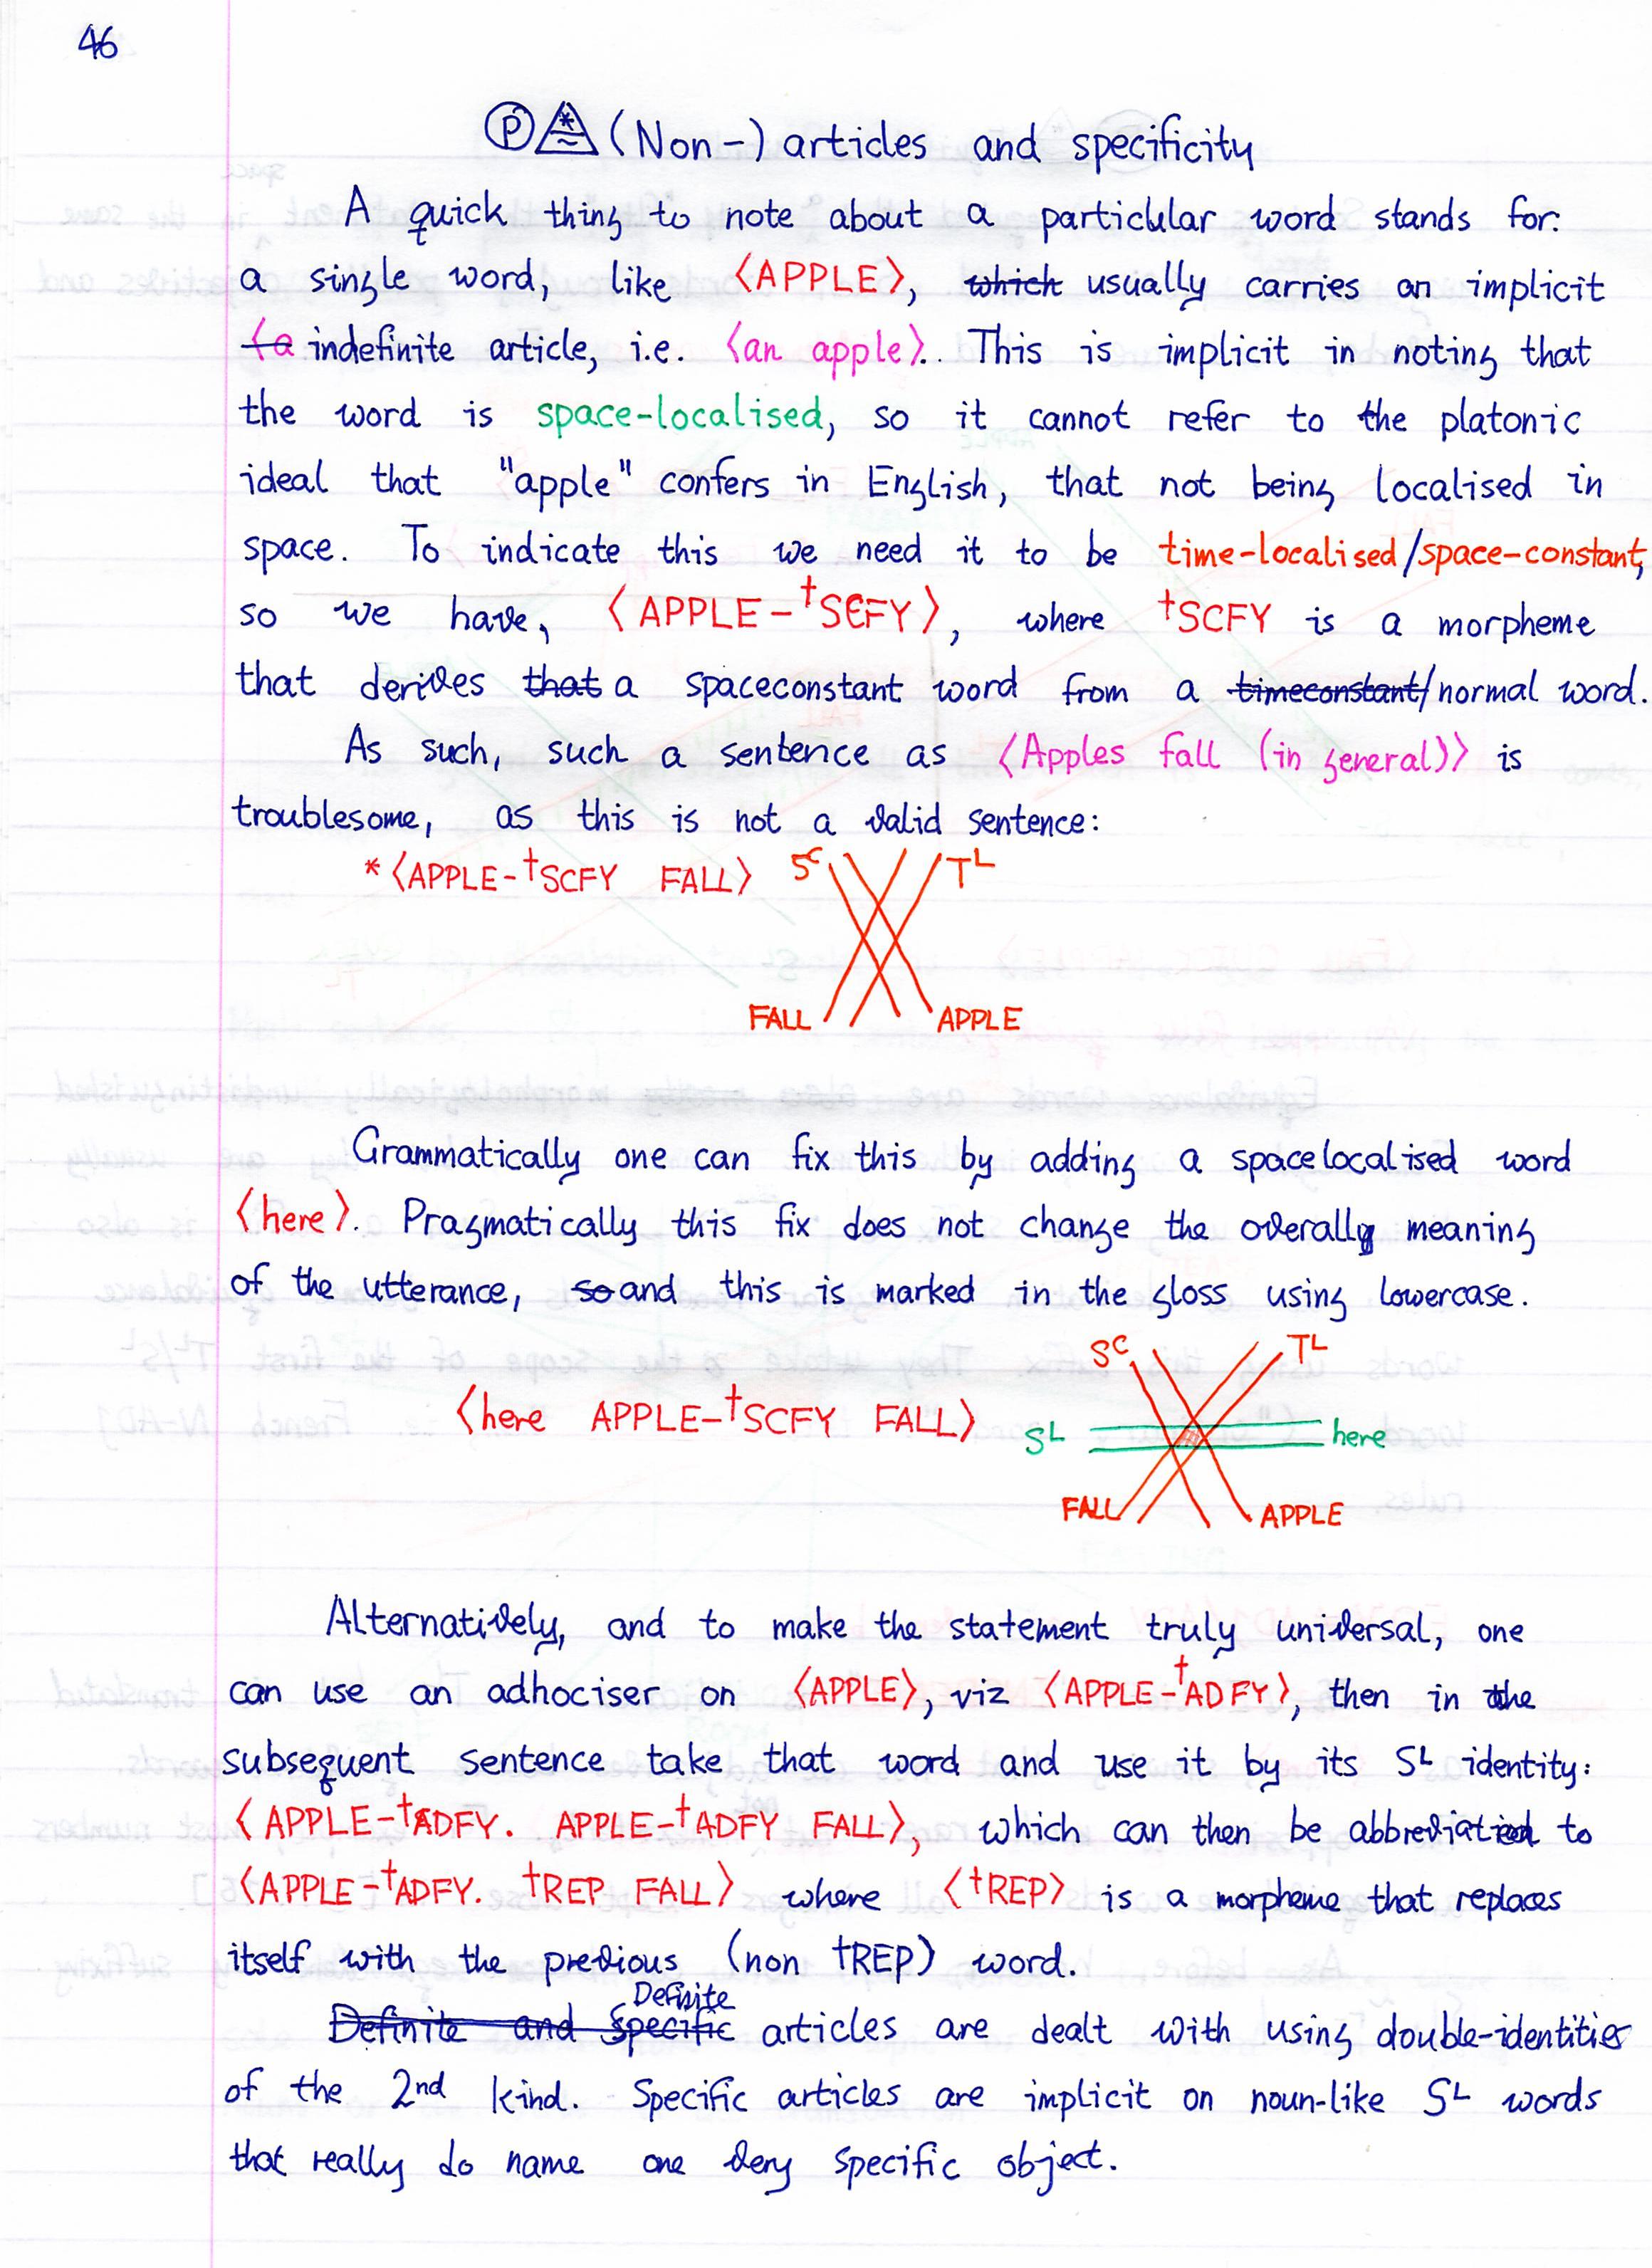 46
Ⓟ (Non-) articles and specificity
A quick thing to note about a particular word stands for:
a single word, like ⟨APPLE⟩, which usually carries an implicit
⟨a indefinite article, i.e. ⟨an apple⟩. This is implicit in noting that
the word is space-localised, so it cannot refer to the platonic
ideal that "apple" confers in English, that not being localised in
space. To indicate this we need it to be time-localised/space-constant,
so we have, ⟨APPLE-†SCFY⟩, where †SCFY is a morpheme
that derives that a spaceconstant word from a timeconstant/normal word.
As such, such a sentence as ⟨Apples fall (in general)⟩ is
troublesome, as this is not a valid sentence:
*⟨APPLE-†SCFY FALL⟩ Sᶜ Tᴸ
FALL APPLE
Grammatically one can fix this by adding a spacelocalised word
⟨here⟩. Pragmatically this fix does not change the overally meaning
of the utterance, so and this is marked in the gloss using lowercase.
Sᶜ Tᴸ
⟨here APPLE-†SCFY FALL⟩ Sᴸ here
FALL APPLE
Alternatively, and to make the statement truly universal, one
can use an adhociser on ⟨APPLE⟩, viz ⟨APPLE-†ADFY⟩, then in the
subsequent sentence take that word and use it by its Sᴸ identity:
⟨APPLE-†ADFY. APPLE-†ADFY FALL⟩, which can then be abbreviated to
⟨APPLE-†ADFY. †REP FALL⟩ where ⟨†REP⟩ is a morpheme that replaces
itself with the previous (non †REP) word.
Definite and Specific Definite articles are dealt with using double-identities
of the 2nd kind. Specific articles are implicit on noun-like Sᴸ words
that really do name one very specific object.